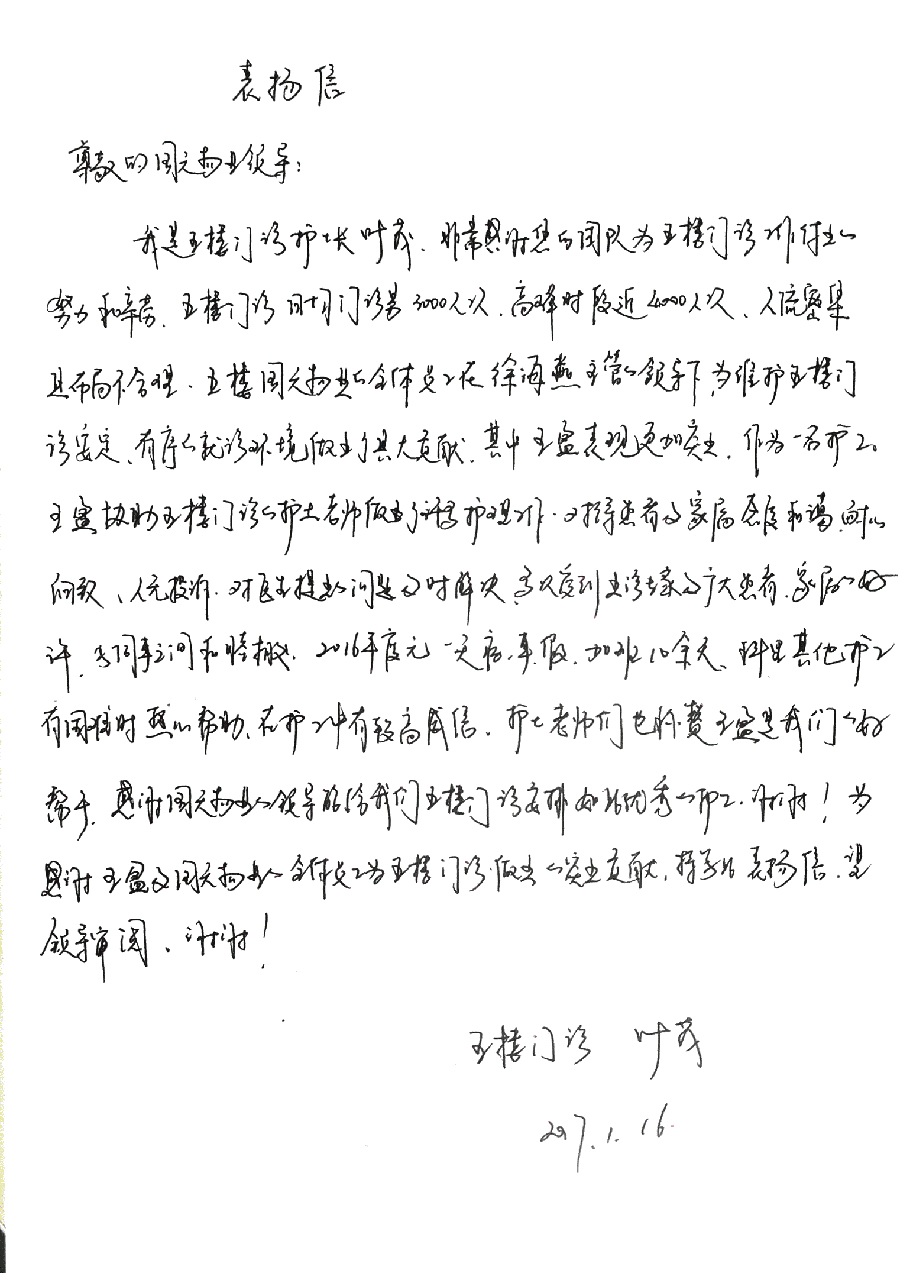 表扬信
尊敬的国天物业领导：
我是五楼门诊护士长叶茂，非常感谢您的团队为五楼门诊工作付出的
努力和辛劳，五楼门诊日门诊量3000人次，高峰时段近4000人次、人流密集
且布局不合理。五楼国天物业的全体员工在徐海燕主管的领导下，为维护五楼门
诊安定、有序的就诊环境做出了巨大贡献，其中王盈表现更加突出，作为一名护工，
王盈协助五楼门诊的护士老师做了许多护理工作，对待患者及家属态度和蔼、耐心
问题及时解决，多次受到出诊专家及广大患者、家属的好
评，与同事之间和睦相处，2016年度无一天病、事假，加班10余天、科里其他护工
有困难时热心帮助、在护工中有较高威信，护士老师们也称赞王盈是我们的好
帮手，感谢国天物业的领导能给我们五楼门诊安排如此优秀的护工，谢谢！为
感谢王盈及国天物业的全体员工为五楼门诊做出的突出贡献，特写此表扬信，望
领导审阅、谢谢！
五楼门诊 叶茂
2017.1.16.